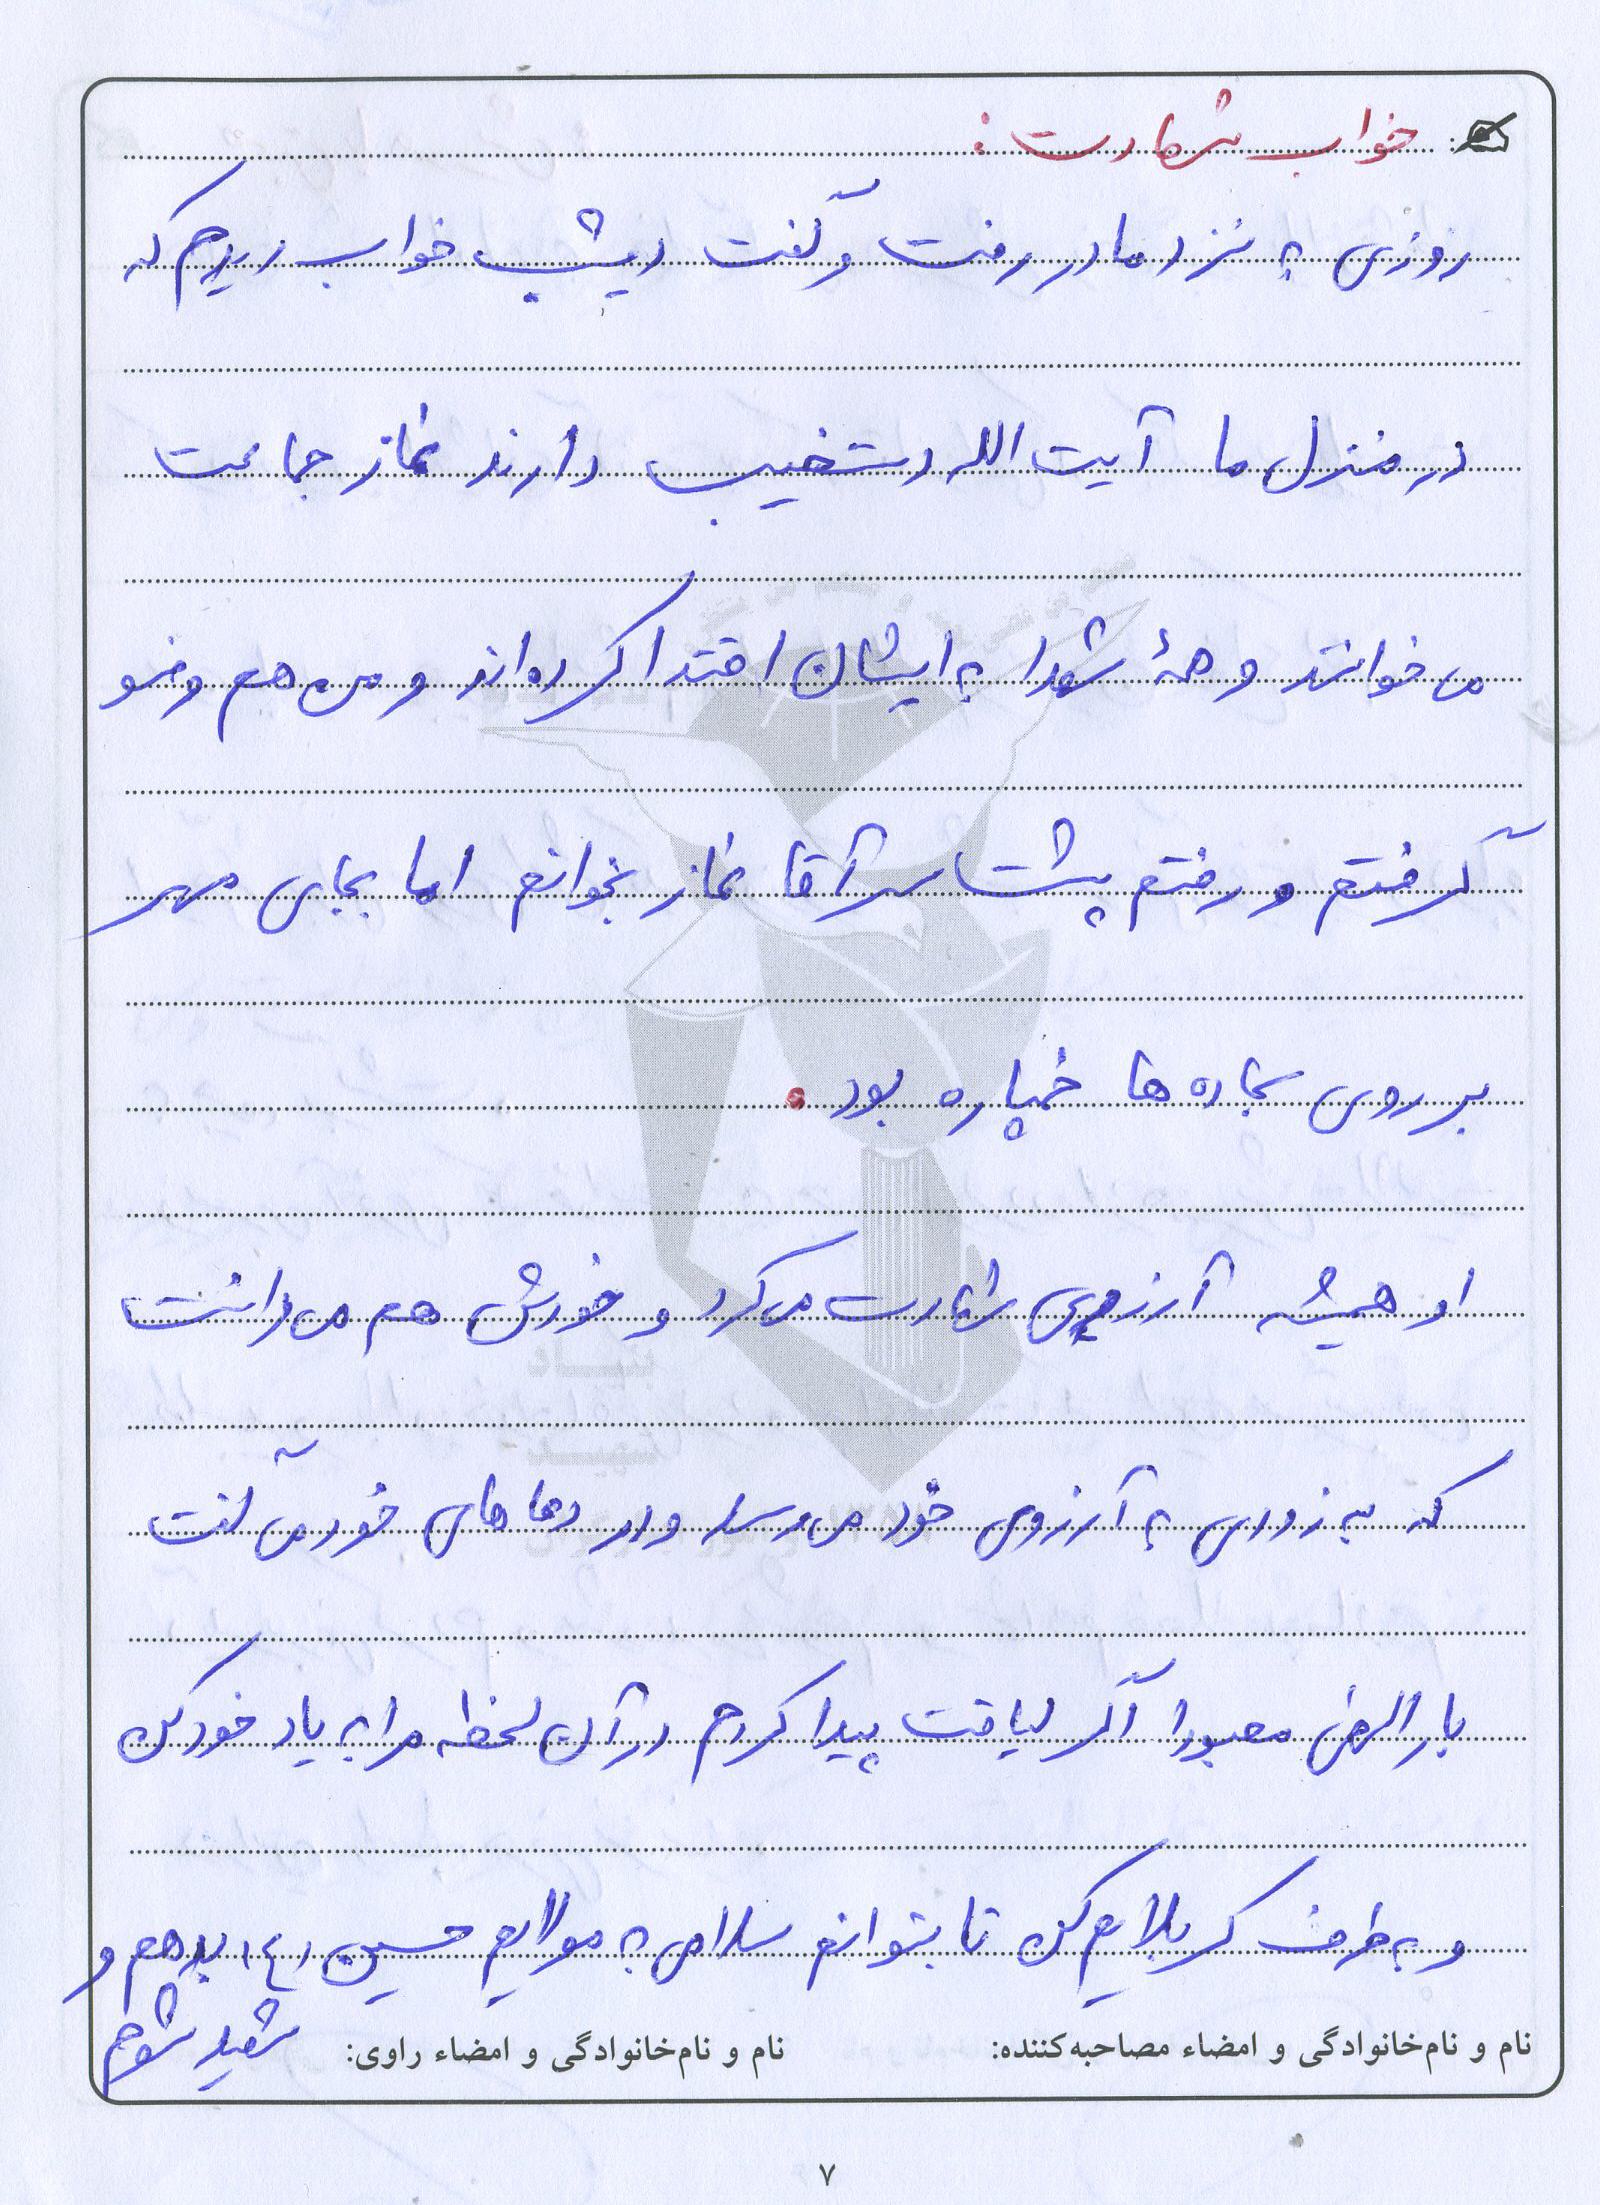 خواب شهادت:
روزی به نزد مادر رفت و گفت دیشب خواب دیدم که
در منزل ما آیت الله دستغیب دارند نماز جماعت
می خوانند و همهٔ شهدا به ایشان اقتدا کرده اند و من هم وضو
گرفتم و رفتم پشت سر آقا نماز بخوانم اما بجای مهر
بر روی سجاده ها خمپاره بود.
او همیشه آرزوی شهادت می کرد و خودش هم می دانست
که به زودی به آرزوی خود می رسد و در دعاهای خود می گفت
بار الهی معبودا اگر لیاقت پیدا کردم در آن لحظه مرا به یاد خود کن
و به طرف کربلایم کن تا بتوانم سلامی به مولایم حسین (ع) بدهم و
شهید شوم
نام و نام‌خانوادگی و امضاء مصاحبه‌کننده: نام و نام‌خانوادگی و امضاء راوی:
۷
بنیاد
شهید